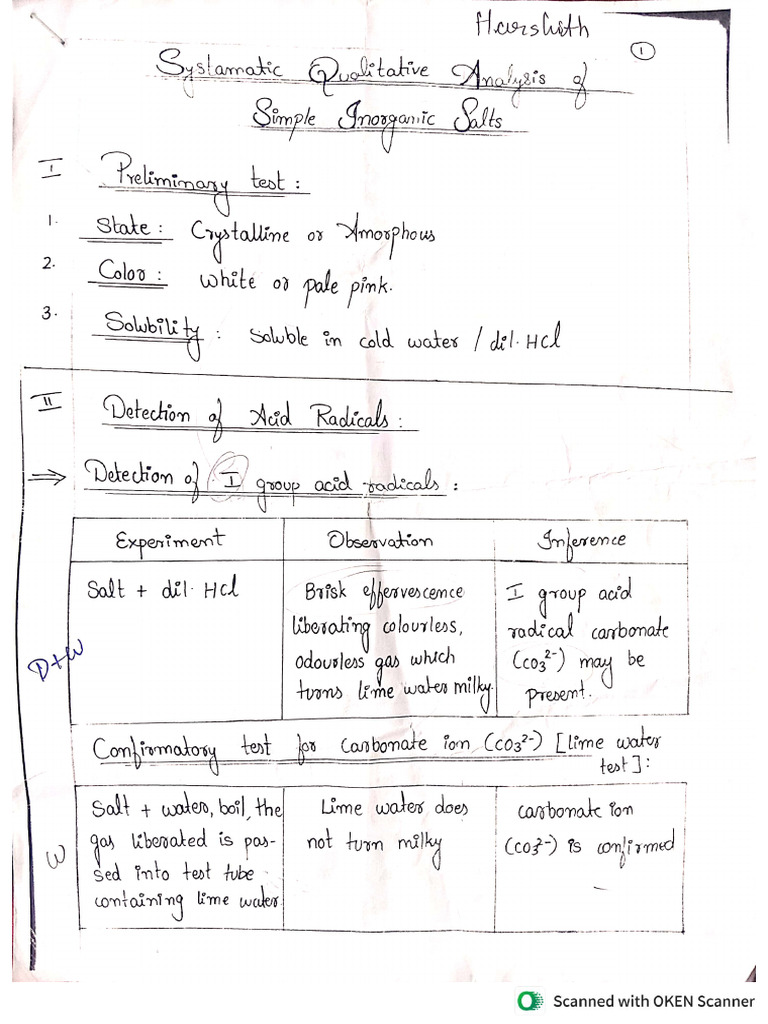 Harshith
1
Systamatic Qualitative Analysis of
Simple Inorganic Salts
I Preliminary test :
1. State : Crystalline or Amorphous
2. Color : white or pale pink.
3. Solbility : soluble in cold water / dil. HCl
II Detection of Acid Radicals :
⇒ Detection of I group acid radicals :
Experiment Observation Inference
Salt + dil. HCl
Brisk effervescence
liberating colourless,
odourless gas which
turns lime water milky.
I group acid
radical carbonate
(CO3²⁻) may be
present.
D+W
Confirmatory test for carbonate ion (CO3²⁻) [lime water
test] :
Salt + water, boil, the
gas liberated is pas-
sed into test tube
containing lime water.
Lime water does
not turn milky
carbonate ion
(CO3²⁻) is confirmed
W
Scanned with OKEN Scanner